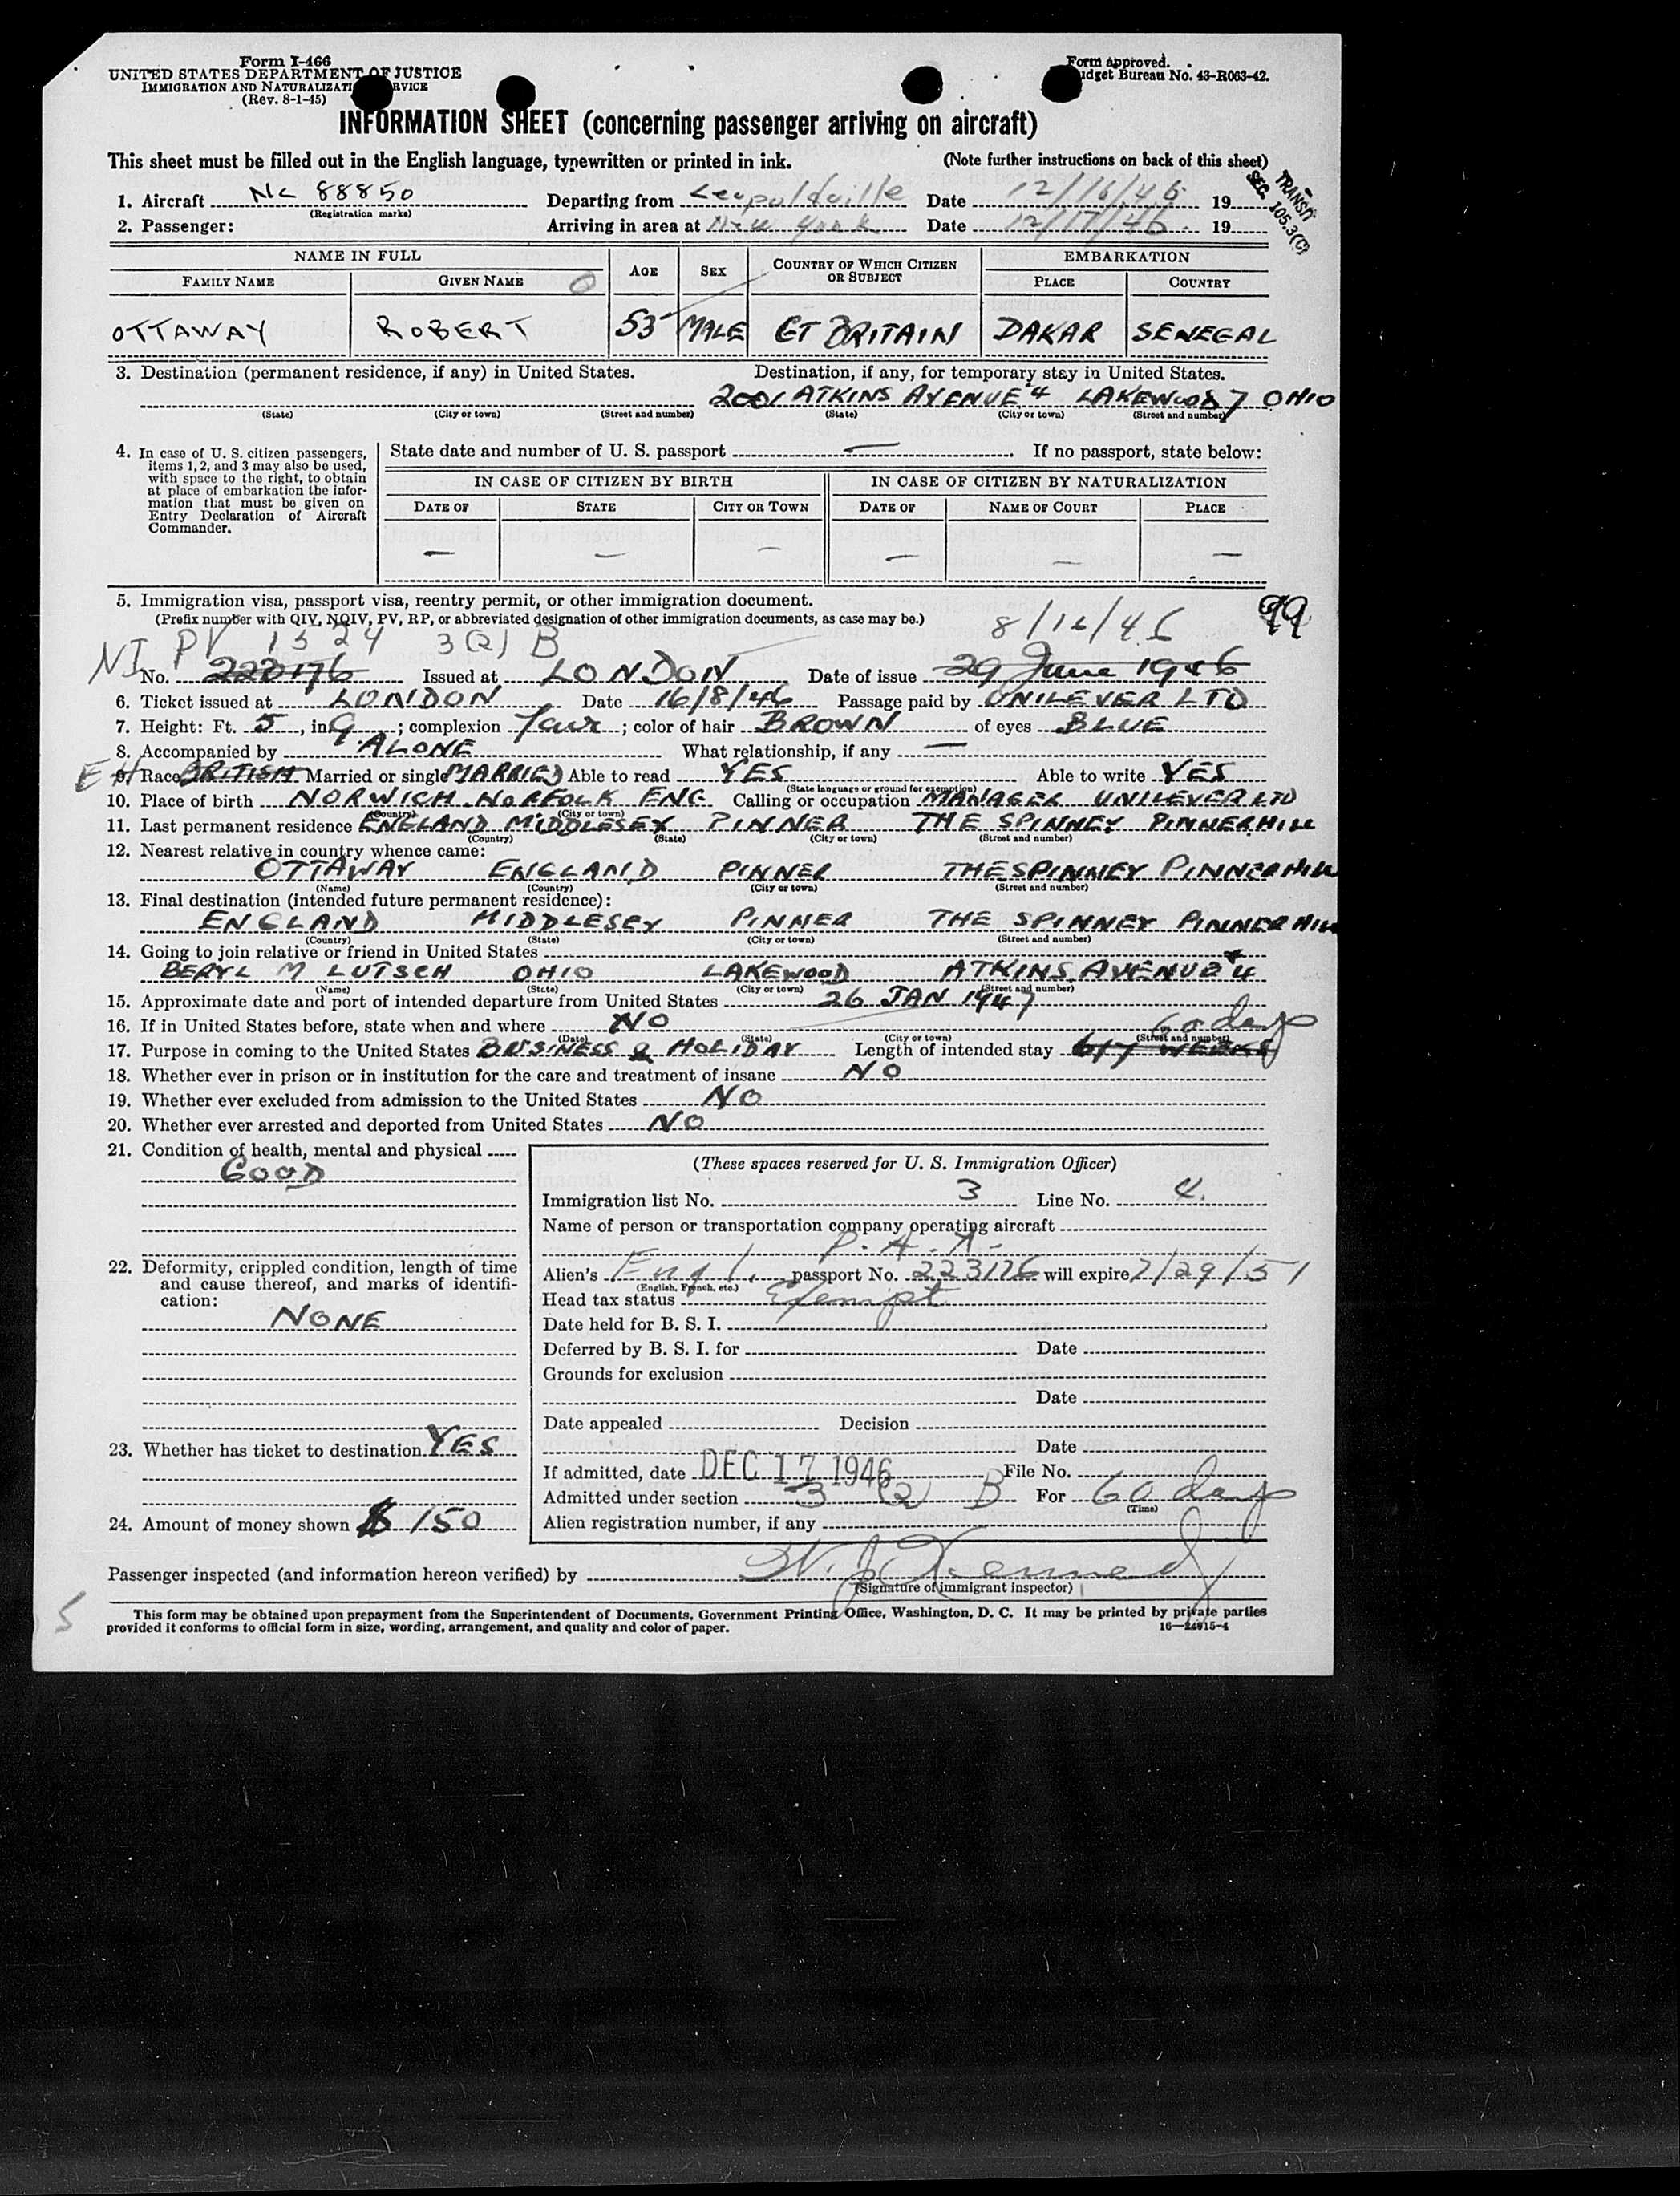 Form I-466
UNITED STATES DEPARTMENT OF JUSTICE
IMMIGRATION AND NATURALIZATI RVICE
(Rev. 8-1-45)
Form approved.
udget Bureau No. 43-R063-42.
INFORMATION SHEET (concerning passenger arriving on aircraft)
This sheet must be filled out in the English language, typewritten or printed in ink. (Note further instructions on back of this sheet)
TRANSIT
SEC. 105.3(C)
1. Aircraft NC 88850 Departing from Leopoldville Date 12/16/46 19
(Registration marks)
2. Passenger: Arriving in area at New York Date 12/17/46 19
NAME IN FULL AGE SEX COUNTRY OF WHICH CITIZEN OR SUBJECT EMBARKATION
FAMILY NAME GIVEN NAME PLACE COUNTRY
OTTAWAY ROBERT 53 MALE GT BRITAIN DAKAR SENEGAL
3. Destination (permanent residence, if any) in United States. Destination, if any, for temporary stay in United States.
2001 ATKINS AVENUE 4 LAKEWOOD 7 OHIO
(State) (City or town) (Street and number) (State) (City or town) (Street and number)
4. In case of U. S. citizen passengers, items 1, 2, and 3 may also be used, with space to the right, to obtain at place of embarkation the information that must be given on Entry Declaration of Aircraft Commander.
State date and number of U. S. passport — If no passport, state below:
IN CASE OF CITIZEN BY BIRTH IN CASE OF CITIZEN BY NATURALIZATION
DATE OF STATE CITY OR TOWN DATE OF NAME OF COURT PLACE
— — — — — —
5. Immigration visa, passport visa, reentry permit, or other immigration document.
(Prefix number with QIV, NQIV, PV, RP, or abbreviated designation of other immigration documents, as case may be.)
8/16/46 99
NI PV 1524 3(2) B
No. 223176 Issued at LONDON Date of issue 29 June 1946
6. Ticket issued at LONDON Date 16/8/46 Passage paid by UNILEVER LTD
7. Height: Ft. 5, in 9; complexion Fair; color of hair BROWN of eyes BLUE
8. Accompanied by ALONE What relationship, if any —
9. Race BRITISH Married or single MARRIED Able to read YES Able to write YES
(State language or ground for exemption)
10. Place of birth NORWICH NORFOLK ENG. Calling or occupation MANAGER UNILEVER LTD
(Country) (City or town)
11. Last permanent residence ENGLAND MIDDLESEX PINNER THE SPINNEY PINNERHILL
(Country) (State) (City or town) (Street and number)
12. Nearest relative in country whence came:
OTTAWAY ENGLAND PINNER THE SPINNEY PINNERHILL
(Name) (Country) (City or town) (Street and number)
13. Final destination (intended future permanent residence):
ENGLAND MIDDLESEX PINNER THE SPINNEY PINNERHILL
(Country) (State) (City or town) (Street and number)
14. Going to join relative or friend in United States
BERYL M LUTSCH OHIO LAKEWOOD ATKINS AVENUE 4
(Name) (State) (City or town) (Street and number)
15. Approximate date and port of intended departure from United States 26 JAN 1947
16. If in United States before, state when and where NO
(Date) (State) (City or town) (Street and number)
60 days
17. Purpose in coming to the United States BUSINESS & HOLIDAY Length of intended stay 6/7 WEEKS
18. Whether ever in prison or in institution for the care and treatment of insane NO
19. Whether ever excluded from admission to the United States NO
20. Whether ever arrested and deported from United States NO
21. Condition of health, mental and physical
GOOD
22. Deformity, crippled condition, length of time and cause thereof, and marks of identification:
NONE
23. Whether has ticket to destination YES
24. Amount of money shown $ 150
(These spaces reserved for U. S. Immigration Officer)
Immigration list No. 3 Line No. 4.
Name of person or transportation company operating aircraft
P. A. A.
Alien's Engl. passport No. 223176 will expire 7/29/51
(English, French, etc.)
Head tax status Exempt
Date held for B. S. I.
Deferred by B. S. I. for Date
Grounds for exclusion
Date
Date appealed Decision
Date
If admitted, date DEC 17 1946 File No.
Admitted under section 3 (2) B For 60 days
(Time)
Alien registration number, if any
Passenger inspected (and information hereon verified) by W. J. Kennedy
(Signature of immigrant inspector)
This form may be obtained upon prepayment from the Superintendent of Documents, Government Printing Office, Washington, D. C. It may be printed by private parties
provided it conforms to official form in size, wording, arrangement, and quality and color of paper. 16—24915-4